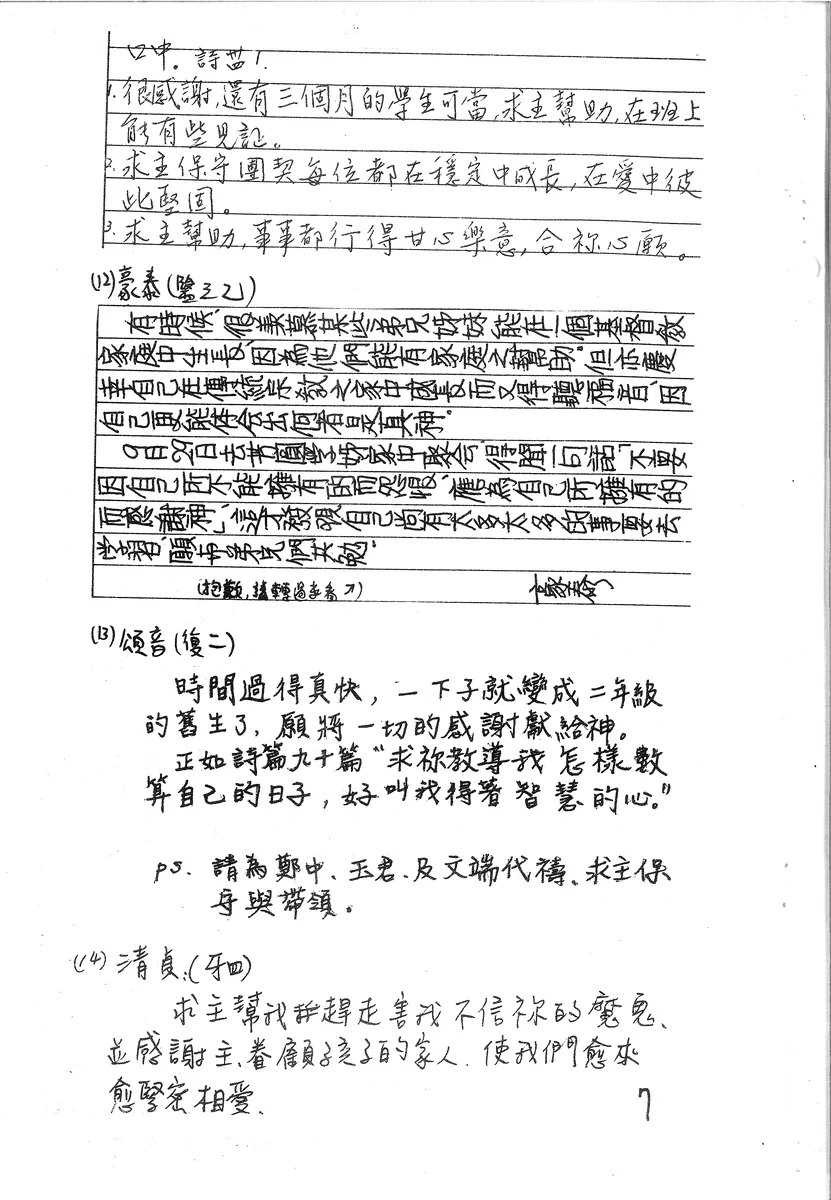 口中。詩
1.很感謝,還有三個月的學生可當,求主幫助,在班上
能有些見証。
2.求主保守團契每位都在穩定中成長,在愛中彼
此堅固。
3.求主幫助,事事都行得甘心樂意,合祢心願。
(12)豪泰(醫三乙)
有時候、很羨慕某些弟兄姊妹能在一個基督教
家庭中生長、因為他們能有家庭之幫助。但亦慶
幸自己在傳統宗教之家中成長而又得聽福音、因
自己更能体會出何者是真神。
9月29日去 學姊家中聚會、得聞一句話「不要
因自己所不能擁有的而怨恨、應為自己所擁有的
而感謝神」、這才發現自己尚有太多太多的事要去
學習、願與弟兄們共勉。
(抱歉,請轉過來看↗) 豪泰
(13)頌音(復二)
時間過得真快,一下子就變成二年級
的舊生了,願將一切的感謝獻給神。
正如詩篇九十篇"求祢教導我怎樣數
算自己的日子,好叫我得著智慧的心。"
ps. 請為鄭中、玉君、及文端代禱、求主保
守與帶領。
(14)清貞:(牙四)
求主幫我 趕走害我不信祢的魔鬼、
並感謝主、眷顧孩子的家人. 使我們愈來
愈緊密相愛、
7